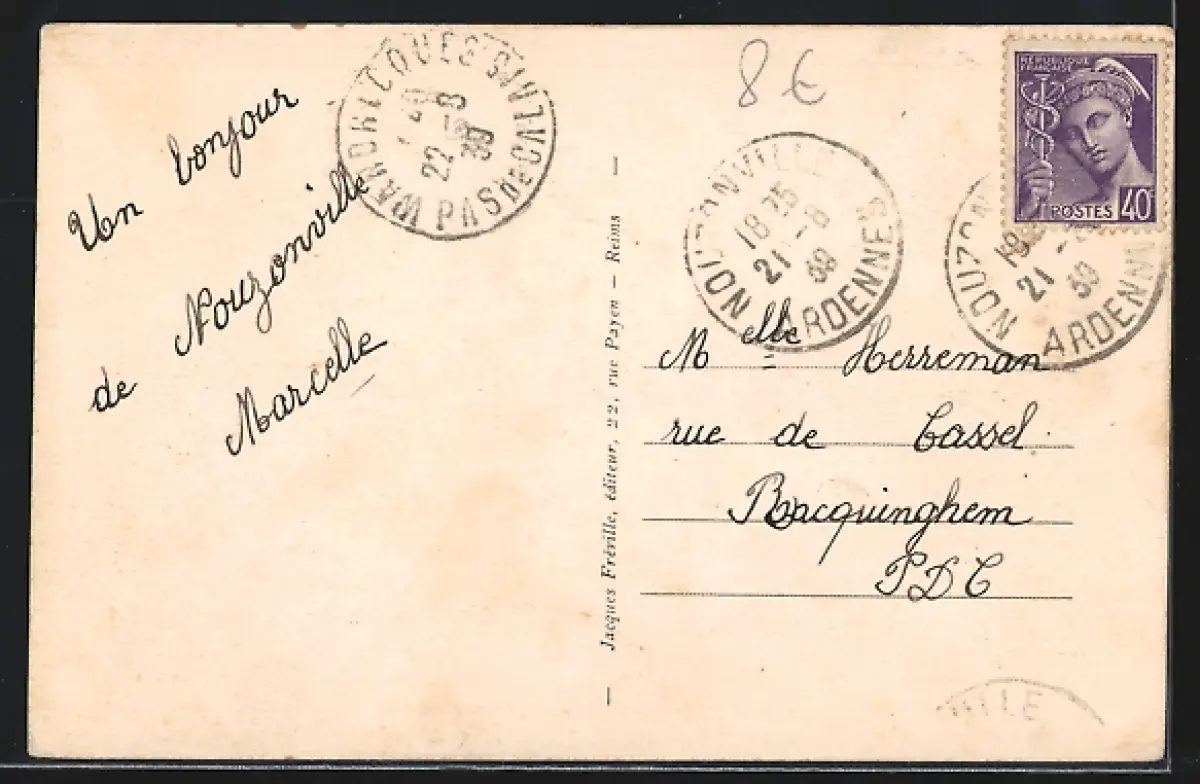 8 €
RÉPUBLIQUE
FRANÇAISE
POSTES 40
WARDRECQUES
22 -8 39
PAS DE CALAIS
NOUZONVILLE
18 25
21 -8 39
ARDENNES
NOUZON
21
39
ARDENN
Un bonjour
de Nouzonville
Marcelle
Jacques Fréville, éditeur, 22, rue Payen - Reims
Melle Herreman
rue de Cassel
Racquinghem
PDC
VILLE